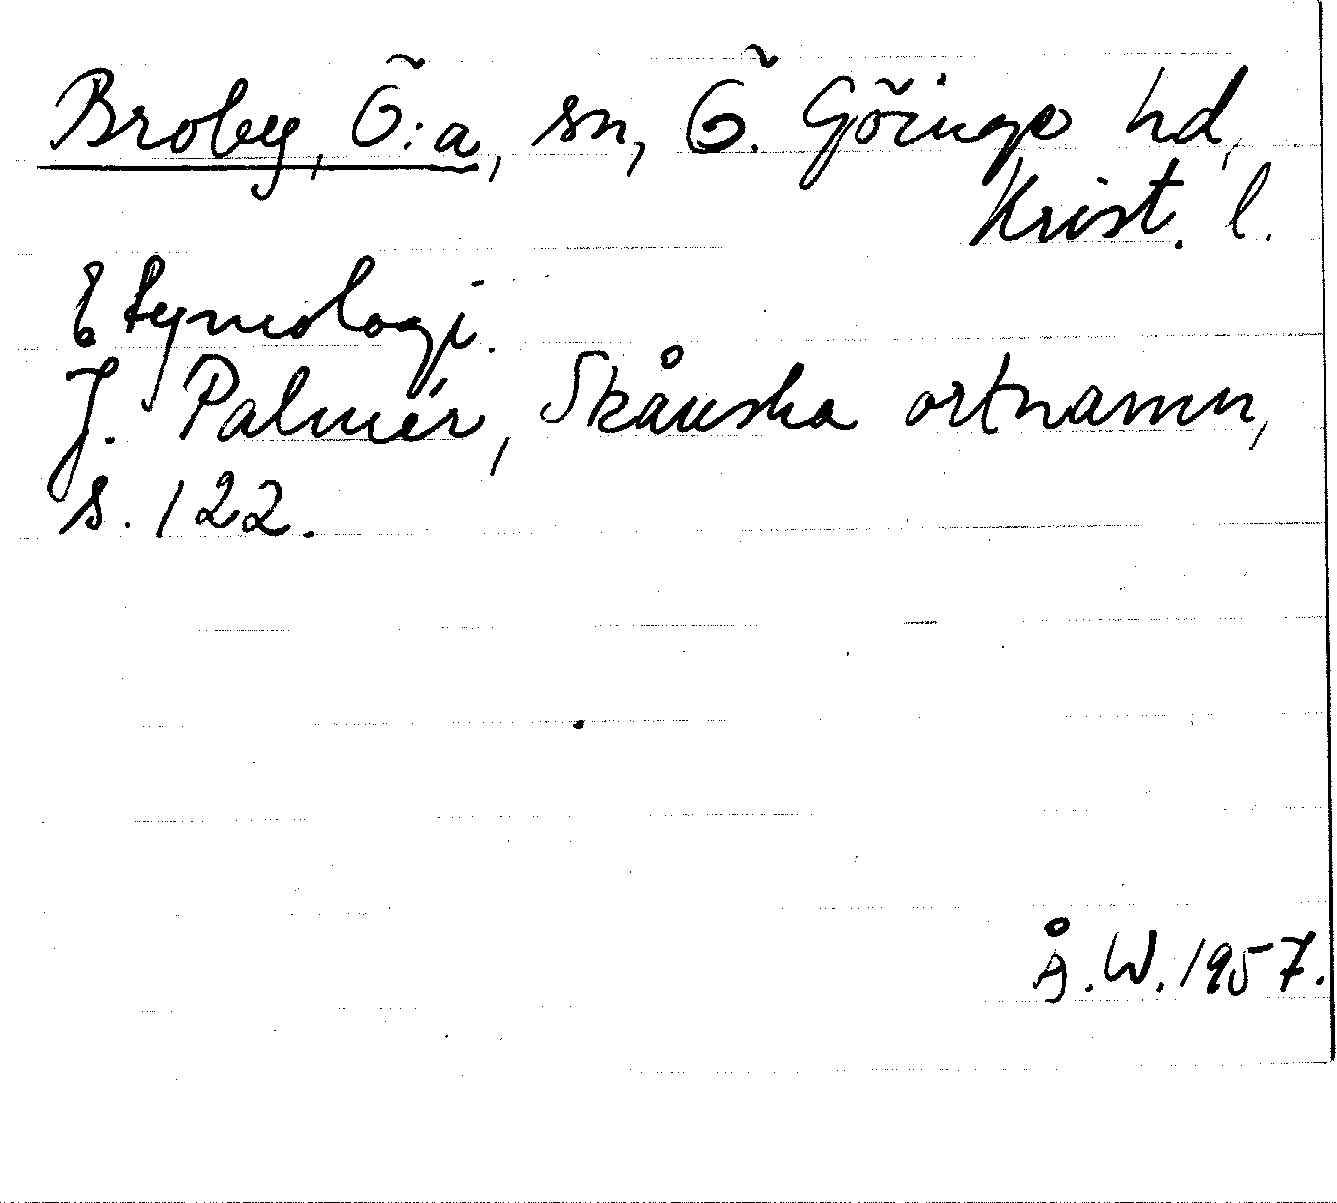 Broby, Ö:a, sn, Ö. Göinge hd,
Krist. l.
Etymologi.
J. Palmér, Skånska ortnamn,
s. 122.
Å.W. 1957.